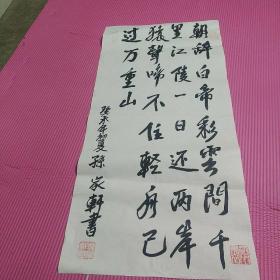 朝辞白帝彩雲間千
里江陵一日還两岸
猿聲啼不住輕舟已
过万重山
癸未年初夏孫家軒書